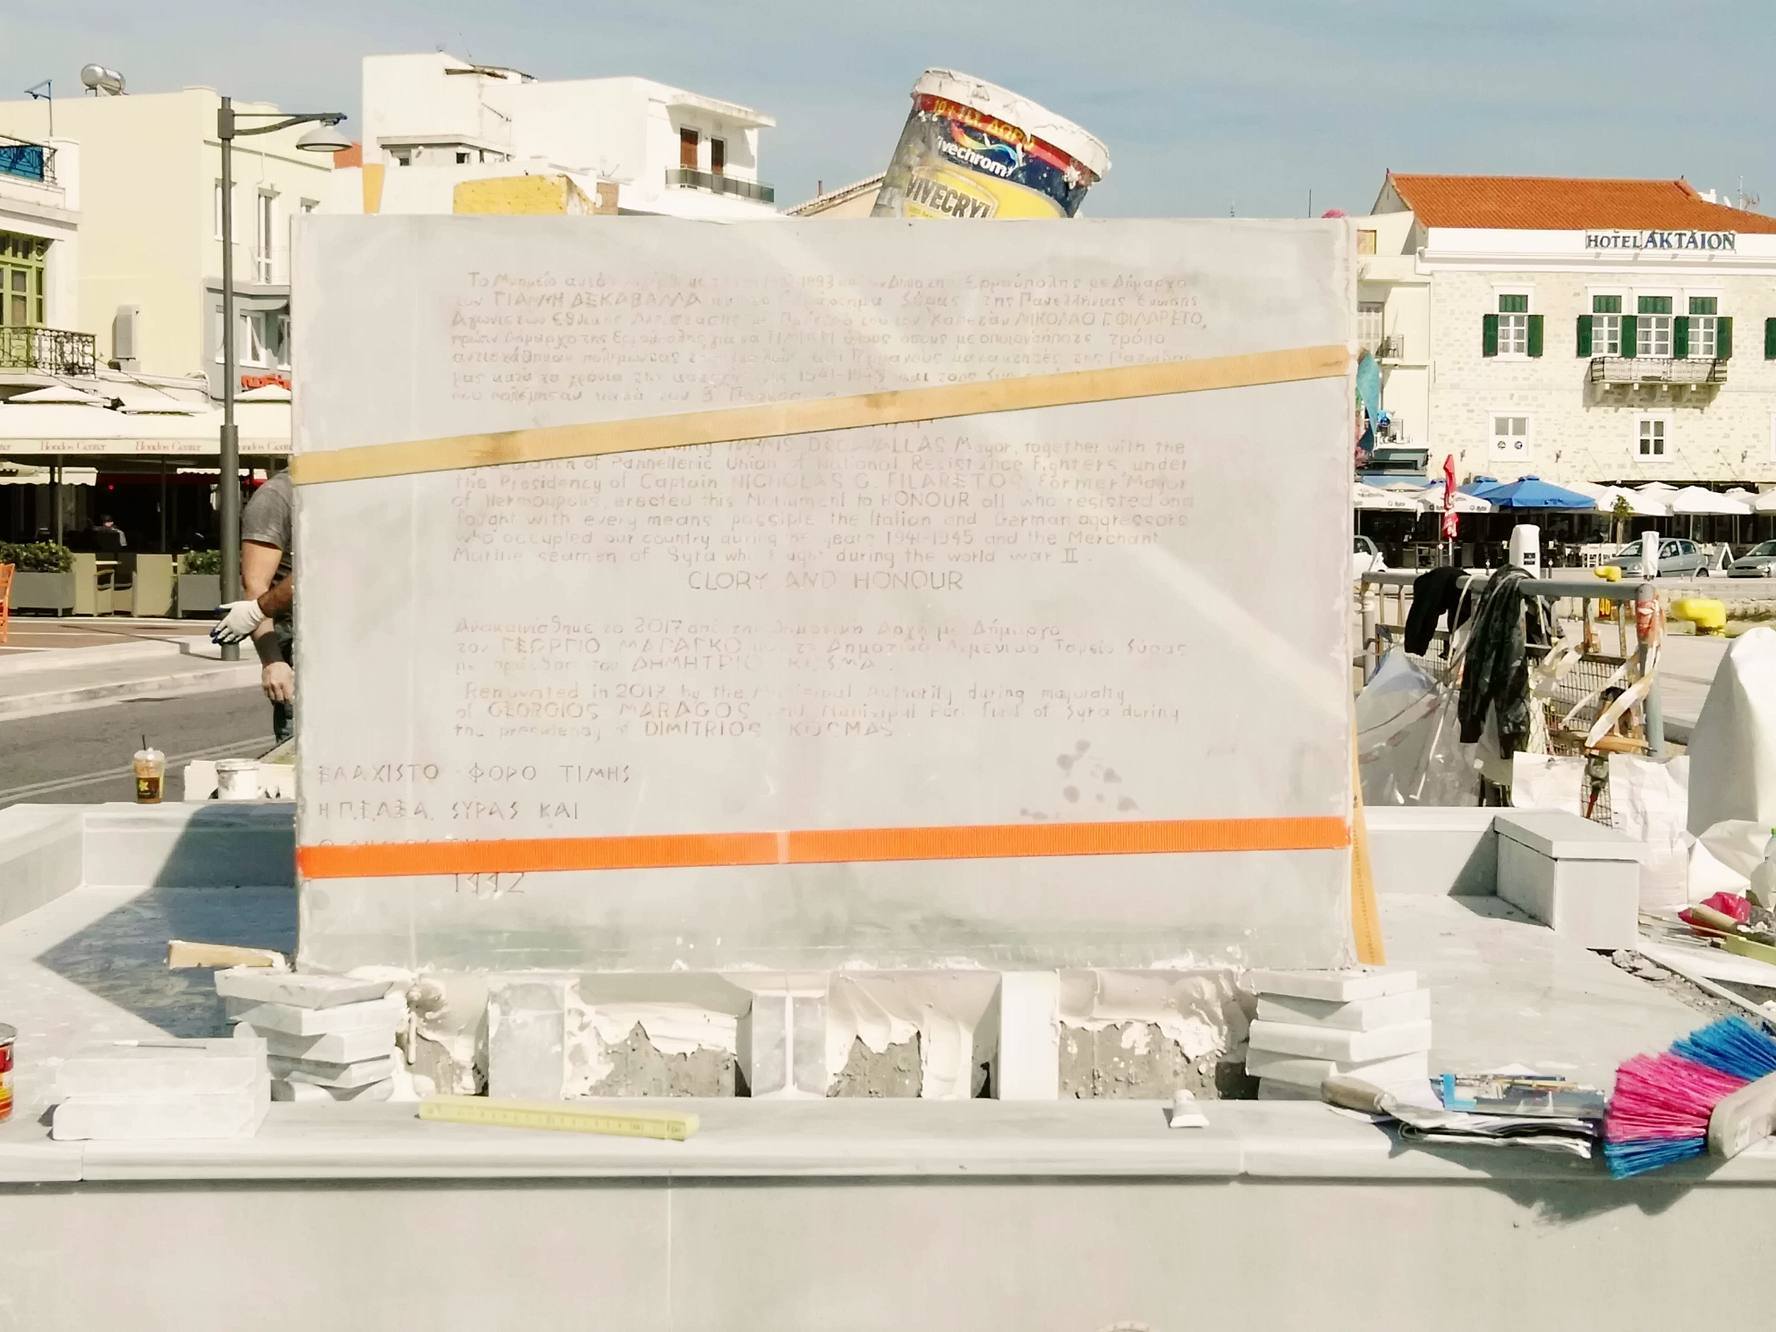 vechrom
VIVECRYL
HOTEL AKTAION
Bondos Center Bondos Center
Το Μνημείο 1993 Ερμούπολης με Δήμαρχο
τον ΓΙΑΝΝΗ ΔΕΚΑΒΑΛΛΑ και το Παράρτημα Σύρας της Πανελλήνιας Ένωσης
Αγωνιστών Εθνικής Αντίστασης με Πρόεδρό του τον Καπετάν ΝΙΚΟΛΑΟ Γ. ΦΙΛΑΡΕΤΟ,
πρώην Δήμαρχο της Ερμούπολης για να ΤΙΜΗΣΗ όλους όσους με οποιονδήποτε τρόπο
αντιστάθηκαν πολεμώντας τους Ιταλούς και Γερμανούς κατακτητές της Πατρίδας
μας κατά τα χρόνια της κατοχής 1941-1945 και τους
που πολέμησαν κατά τον Β΄ Παγκόσμιο
YANNIS DECAVALLAS Mayor, together with the
branch of Panhellenic Union of National Resistance Fighters, under
the Presidency of Captain NICHOLAS G. FILARETOS, Former Mayor
of Hermoupolis, erected this Monument to HONOUR all who resisted and
fought with every means possible the Italian and German aggressors
who occupied our country during the years 1941-1945 and the Merchant
Marine seamen of Syra who fought during the world war II.
CLORY AND HONOUR
Ανακαινίσθηκε το 2017 από την Δημοτική Αρχή με Δήμαρχο
τον ΓΕΩΡΓΙΟ ΜΑΡΑΓΚΟ και το Δημοτικό Λιμενικό Ταμείο Σύρας
με πρόεδρο τον ΔΗΜΗΤΡΙΟ ΚΟΣΜΑ
Renovated in 2017 by the Municipal Authority during mayoralty
of GEORGIOS MARAGOS and Municipal Port Fund of Syra during
the presidency of DIMITRIOS KOCMAS
ΕΛΑΧΙΣΤΟ ΦΟΡΟ ΤΙΜΗΣ
Η Π.Ε.Α.Ε.Α. ΣΥΡΑΣ ΚΑΙ
1992